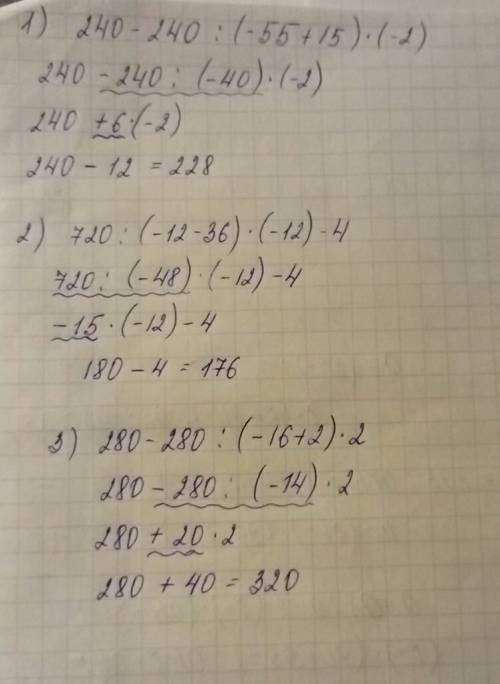 1) 240 - 240 : (-55 + 15) · (-2)
240 - 240 : (-40) · (-2)
240 + 6 · (-2)
240 - 12 = 228
2) 720 : (-12 - 36) · (-12) - 4
720 : (-48) · (-12) - 4
-15 · (-12) - 4
180 - 4 = 176
3) 280 - 280 : (-16 + 2) · 2
280 - 280 : (-14) · 2
280 + 20 · 2
280 + 40 = 320